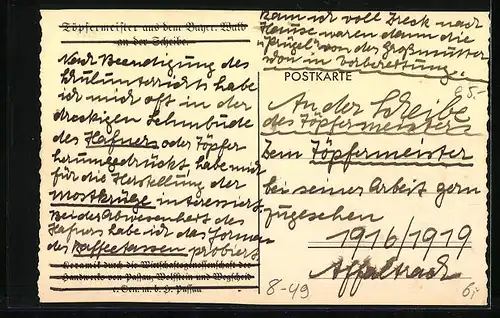 Töpfermeister aus dem Bayer. Wald
an der Scheibe.
Nach Beendigung des
Schulunterrichts habe
ich mich oft in der
dreckigen Lehmbude
des Hafners oder Töpfer
herumgedrückt habe mich
für die Herstellung der
Mostkrüge interessiert.
Bei der Abwesenheit des
Hafners habe ich das formen
des Kaffeetassen probiert
Keramit durch die Wirtschaftsgenossenschaft der
Handwerks von Passau, Wolfstein und Wegscheid
e. Gen. m. b. H. Passau
Kam ich voll Dreck nach
Hause waren dann die
"Prügel" von der Großmutter
schon in Vorbereitung.
POSTKARTE
65.-
An der Scheibe
des Töpfermeisters
Dem Töpfermeister
bei seiner Arbeit gern
zugesehen
1916/1919
Affaltrach
8-49
6,-